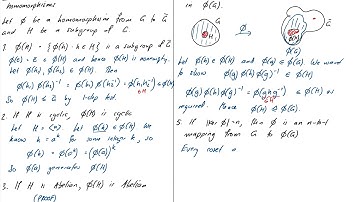 homomorphisms
Let ϕ be a homomorphism from G to G̅
and H be a subgroup of G.
1. ϕ(H) = {ϕ(h) : h ∈ H} is a subgroup of G̅
ϕ(e) = e̅ ∈ ϕ(H) and hence ϕ(H) is nonempty.
Let ϕ(h₁), ϕ(h₂) ∈ ϕ(H). Then
ϕ(h₁) ϕ(h₂)⁻¹ = ϕ(h₁) ϕ(h₂⁻¹) = ϕ(h₁h₂⁻¹) ∈ ϕ(H)
∈ H
So ϕ(H) ≤ G̅ by 1-step
2. If H is cyclic, ϕ(H) is cyclic
Let H = <a> Let ϕ(h) ∈ ϕ(H) We
know h = aᵏ for some integer k, so
ϕ(h) = ϕ(aᵏ) = (ϕ(a))ᵏ
So ϕ(a) generates ϕ(H)
3. If H is Abelian, ϕ(H) is Abelian
(PROOF)
in ϕ(G).
H
G
ϕ
ϕ(H)
ϕ(G)
Let ϕ(h) ∈ ϕ(H) and ϕ(g) ∈ ϕ(G). We want
to show ϕ(g) ϕ(h) ϕ(g)⁻¹ ∈ ϕ(H)
ϕ(g) ϕ(h) ϕ(g)⁻¹ = ϕ(ghg⁻¹) ∈ ϕ(H) as
∈ H
required. Hence ϕ(H) ⊲ ϕ(G).
5. If |ker ϕ| = n, then ϕ is an n-to-1
mapping from G to ϕ(G)
Every coset o